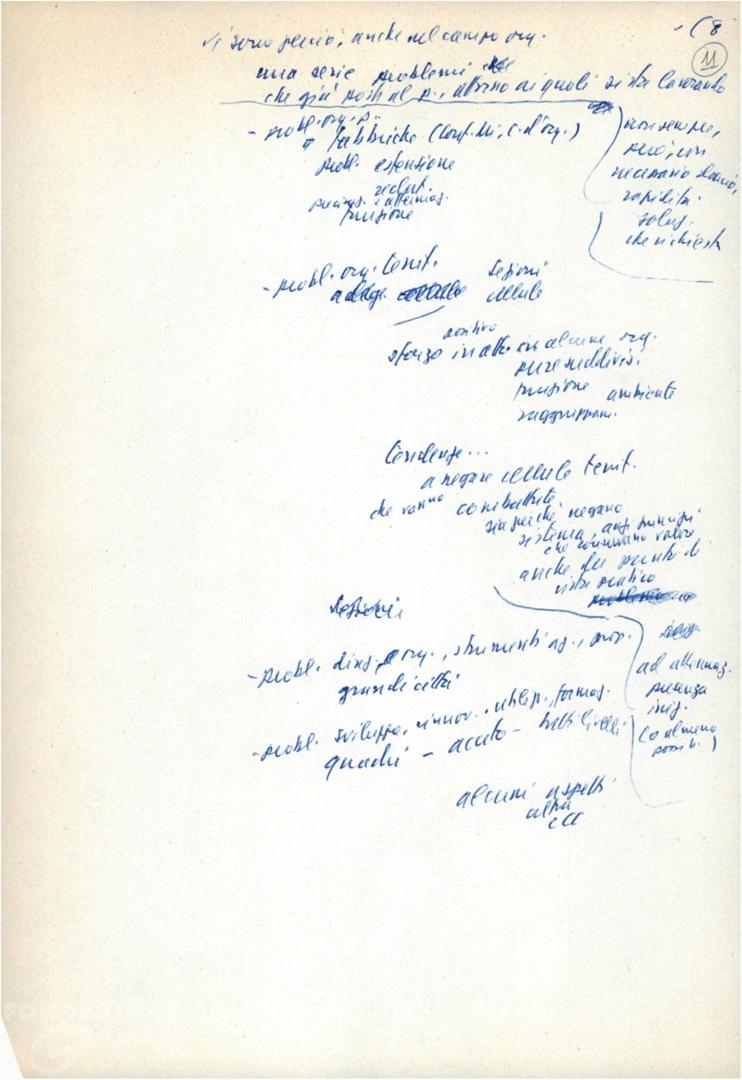 (8
11
vi sono perciò, anche nel campo org.
una serie problemi
che già posti al p., attorno ai quali si sta lavorando
- probl. org. p.
fabbriche (Conf. Mi, C. d'org.)
probl. estensione
reclut.
funzione
non sempre,
però, con
necessario slancio,
rapidità
soluz.
che richiesta
- probl. org. territ.
sezioni
cellule
positivo
sforzo in atto in alcune org.
pure suddivis.
funzione ambiente
raggruppam.
Tendenze...
a negare cellule territ.
che vanno combattute
sia perché negano
sistema, anzi principi
che conservano valore
anche da punto di
vista pratico
Sezioni
- probl. direz. org., strumenti org., prov.
grandi città
- probl. sviluppo, rinnov., utiliz., formaz.
quadri - acuto - tutti livelli
ad attenuaz.
presenza
iniz.
(o almeno
possib.)
alcuni aspetti
altra
ecc